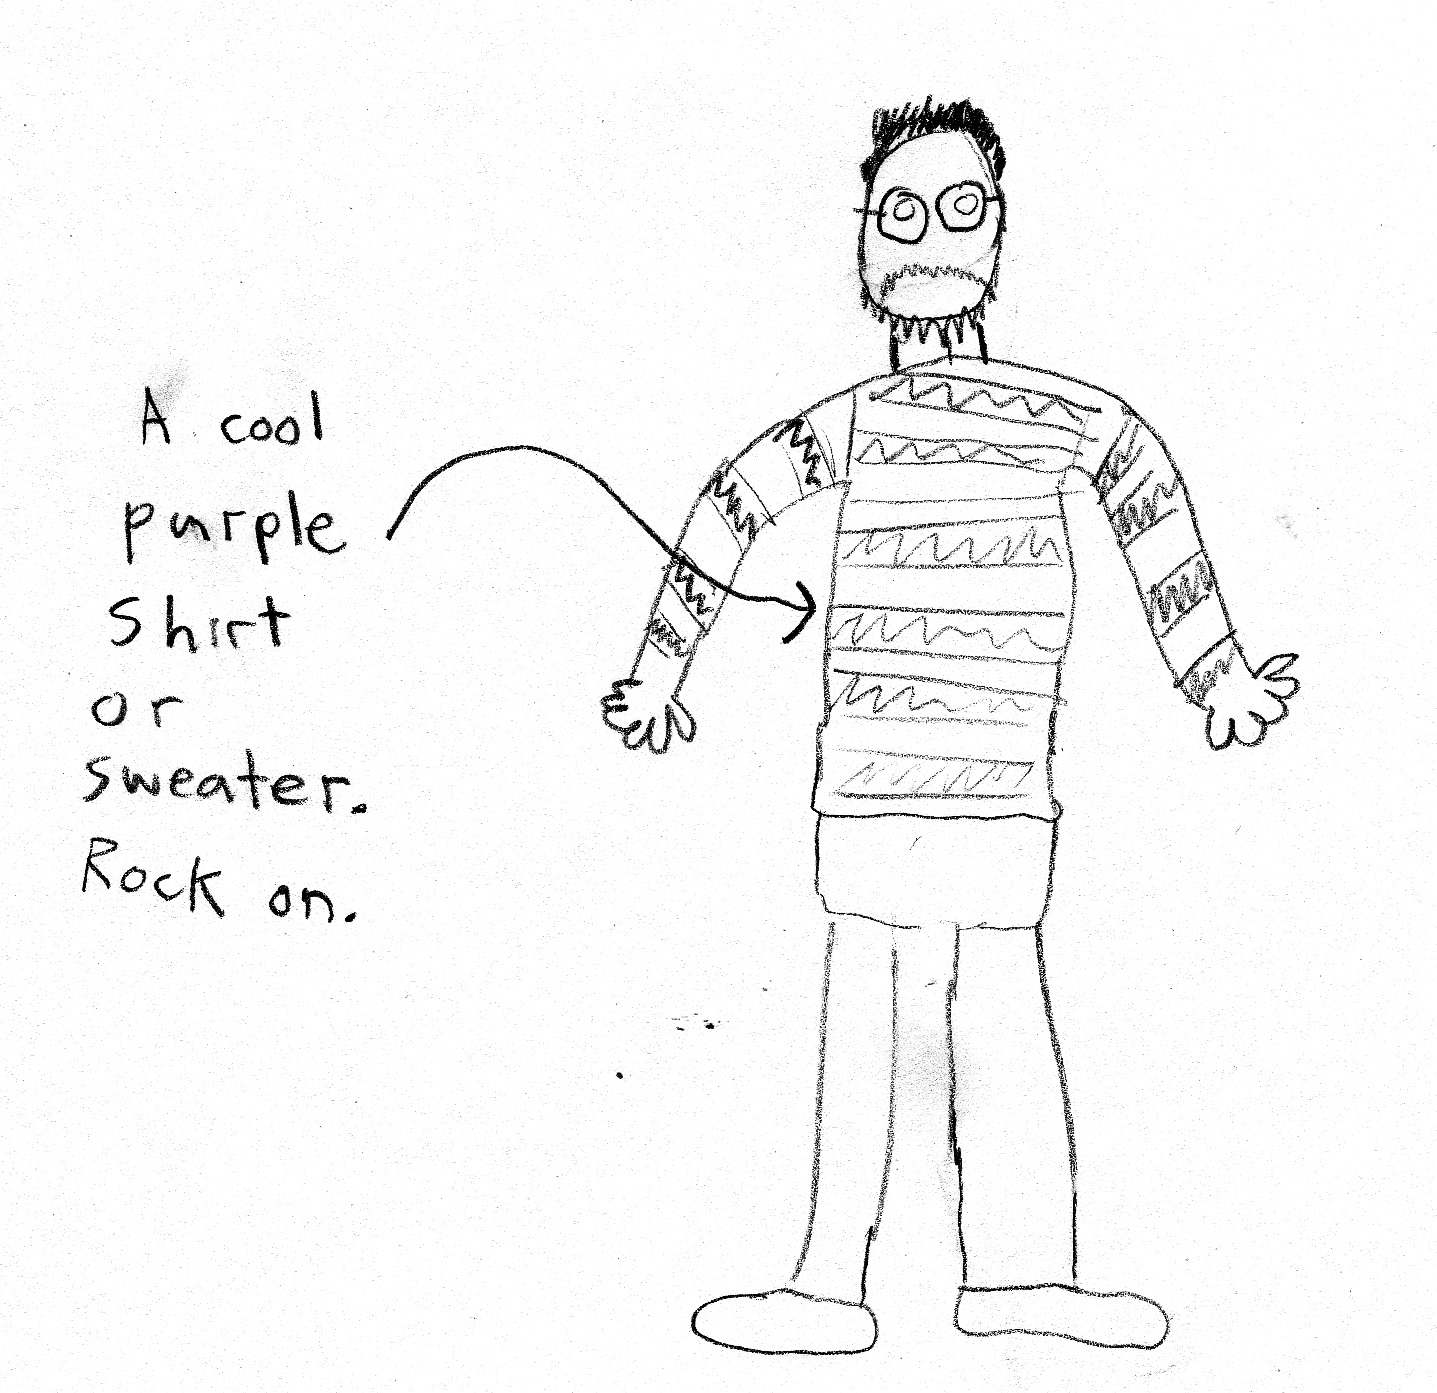 A cool
purple
shirt
or
sweater.
Rock on.